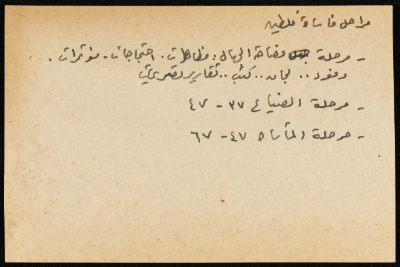 مراحل مأساة فلسطين
- مرحلة مضاحة الجهال : مظاهرات . احتجاجات - مؤتمرات .
وفود .. لجان .. كتب .. تقارير تصريحات
- مرحلة الضياع ٣٧ - ٤٧
- مرحلة المأساة ٤٧ - ٦٧